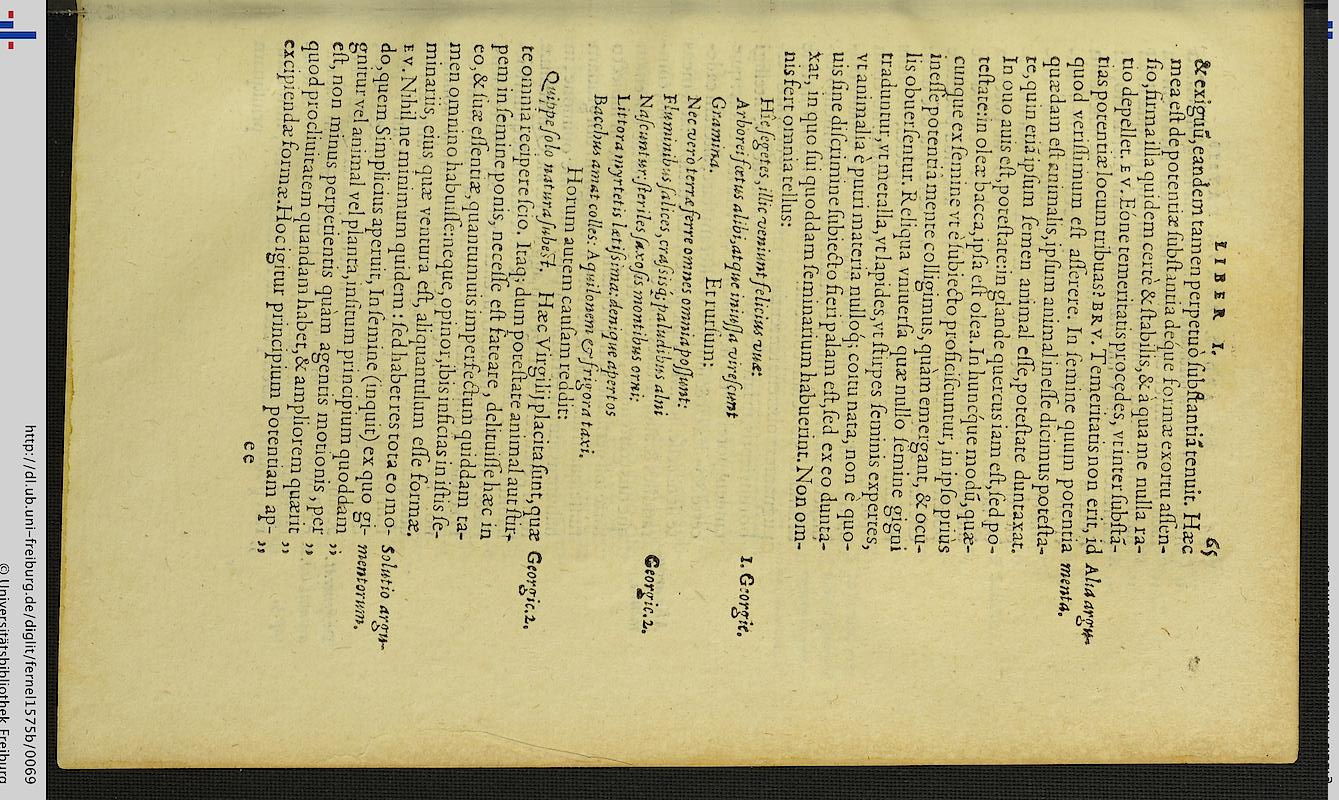 LIBER I. 65
& exiguũ, eandem tamen perpetuò substantiã tenuit. Hæc
mea est de potentiæ substantia deque formæ exortu assen-
sio, firma illa quidem certè & stabilis, & à qua me nulla ra-
tio depellet. EV. Eone temeritatis procedes, vt inter substã-
tias potentiæ locum tribuas? BRV. Temeritatis non erit, id
quod verissimum est asserere. In semine quum potentia
quædam est animalis, ipsum animal inesse dicimus potesta-
te, quin etiã ipsum semen animal esse, potestate duntaxat.
In ouo auis est, potestate: in glande quercus iam est, sed po-
testate: in oleæ bacca, ipsa est olea. In huncque modũ, quæ-
cunque ex semine vt è subiecto proficiscuntur, in ipso prius
inesse potentia mente colligimus, quàm emergant, & ocu-
lis obuersentur. Reliqua vniuersa quæ nullo semine gigni
traduntur, vt metalla, vt lapides, vt stirpes seminis expertes,
vt animalia è putri materia nulloq; coitu nata, non è quo-
uis sine discrimine subiecto fieri palam est, sed ex eo dunta-
xat, in quo sui quoddam seminarium habuerint. Non om-
nis fert omnia tellus:
Hîc segetes, illic veniunt felicius vuæ:
Arborei fœtus alibi, atque iniussa virescunt
Gramina. Et rursum:
Nec verò terræ ferre omnes omnia possunt:
Fluminibus salices, crassisq; paludibus alni
Nascuntur: steriles saxosis montibus orni:
Littora myrtetis lætissima: denique apertos
Bacchus amat colles: Aquilonem & frigora taxi.
Horum autem causam reddit:
Quippe solo natura subest. Hæc Virgilij placita sunt, quæ
te omnia recipere scio. Itaq; dum potestate animal aut stir-
pem in semine ponis, necesse est fateare, delituisse hæc in
eo, & suæ essentiæ, quantumuis imperfectum quiddam ta-
men omnino habuisse: neque, opinor, ibis inficias in istis se-
minariis, eius quæ ventura est, aliquantulum esse formæ.
EV. Nihil, ne minimum quidem: sed habet res tota eo mo-
do, quem Simplicius aperuit, In semine (inquit) ex quo gi-
gnitur vel animal vel planta, insitum principium quoddam
est, non minus perpetientis quàm agentis motionis, per
quod procliuitatem quandam habet, & ampliorem quærit
excipiendæ formæ. Hoc igitur principium potentiam ap-
ee
Alia argu-
menta.
1. Georgic.
Georgic. 2.
Georgic. 2.
Solutio argu-
mentorum.
„
„
„
„
http://dl.ub.uni-freiburg.de/diglit/fernel1575b/0069
© Universitätsbibliothek Freiburg